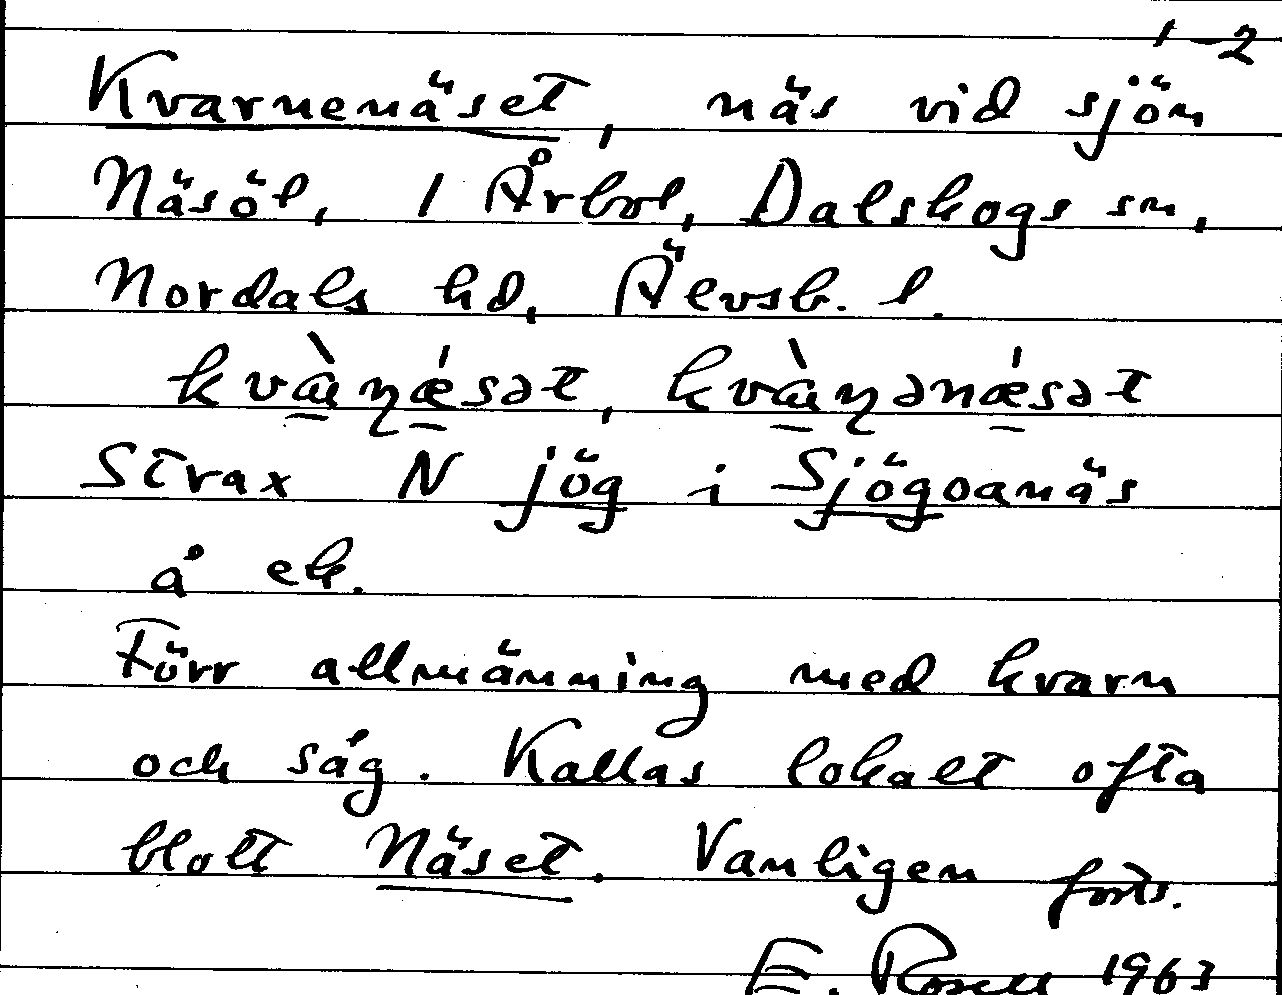 1-2
Kvarnenäset, näs vid sjön
Näsöl, 1 Årbol, Dalskogs sn,
Nordals hd, Älvsb. l.
kvàɳǽsət, kvàɳənǽsət
Strax N jög i Sjögoanäs
å ek.
Förr allmänning med kvarn
och såg. Kallas lokalt ofta
blott Näset. Vanligen forts.
E. Rosell 1963